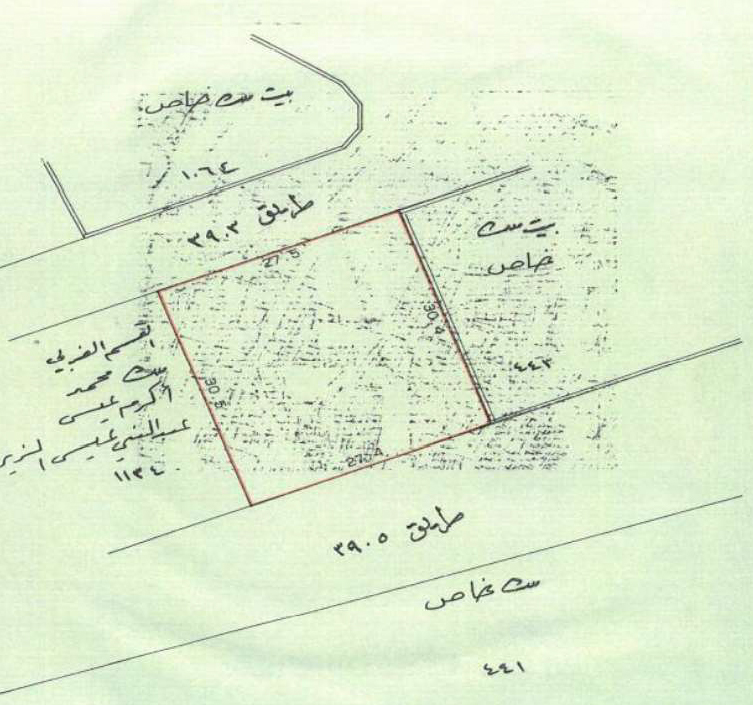 بيت ملك خاص
١٠٦٤
طريق ٣٩٠٣
27.5
بيت ملك
خاص
30.4
٤٤٣
القسم الغربي
ملك محمد
أكرم عيسى
عبدالنبي عيسى
١١٣٤
30.5
27.4
طريق ٣٩٠٥
ملك خاص
٤٤١